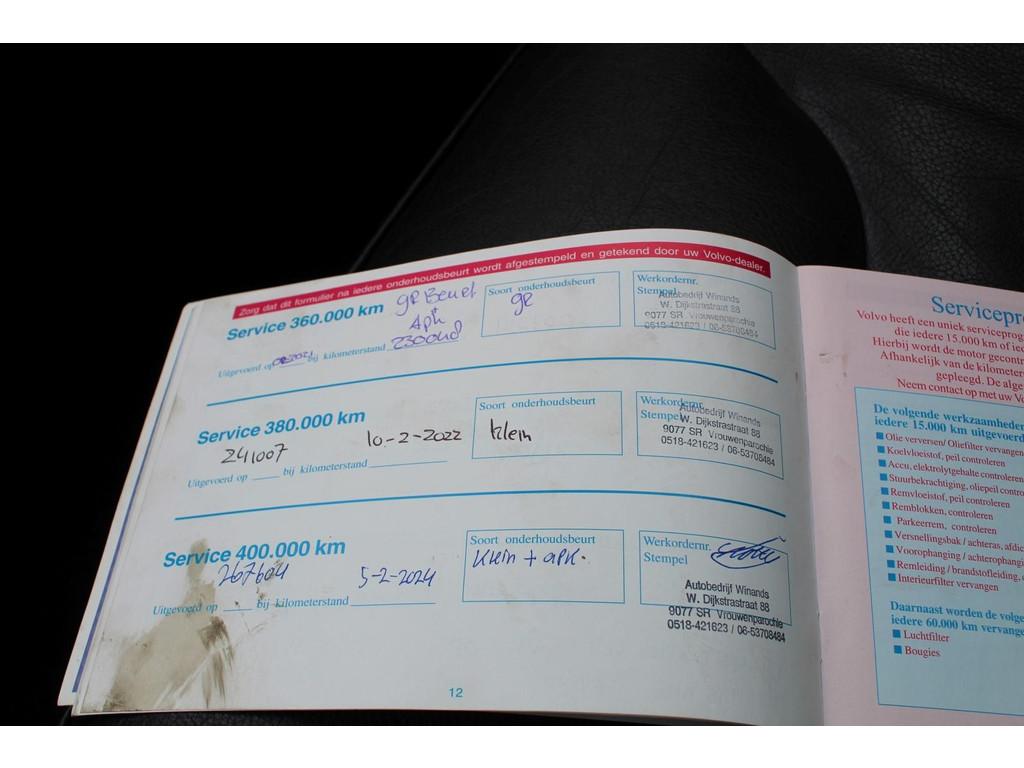 Zorg dat dit formulier na iedere onderhoudsbeurt wordt afgestempeld en getekend door uw Volvo-dealer.
Service 360.000 km
gr Beurt
Apk
Uitgevoerd op bij kilometerstand
Soort onderhoudsbeurt
gr
Werkordernr.
Stempel
Autobedrijf Winands
W. Dijkstrastraat 88
9077 SR Vrouwenparochie
0518-421623 / 06-53708484
Service 380.000 km
241007 10-2-2022
Uitgevoerd op bij kilometerstand
Soort onderhoudsbeurt
Klein
Werkordernr.
Stempel
Autobedrijf Winands
W. Dijkstrastraat 88
9077 SR Vrouwenparochie
0518-421623 / 06-53708484
Service 400.000 km
267604 5-2-2024
Uitgevoerd op bij kilometerstand
Soort onderhoudsbeurt
Klein + apk.
Werkordernr.
Stempel
Autobedrijf Winands
W. Dijkstrastraat 88
9077 SR Vrouwenparochie
0518-421623 / 06-53708484
12
Servicepr
Volvo heeft een uniek serviceprog
die iedere 15.000 km of ied
Hierbij wordt de motor gecontr
Afhankelijk van de kilometers
gepleegd. De alge
Neem contact op met uw Vo
De volgende werkzaamheden
iedere 15.000 km uitgevoerd
Olie verversen/ Oliefilter vervangen
Koelvloeistof, peil controleren
Accu, elektrolytgehalte controleren
Stuurbekrachtiging, oliepeil contro
Remvloeistof, peil controleren
Remblokken, controleren
Parkeerrem, controleren
Versnellingsbak / achteras, afdic
Voorophanging / achterophangin
Remleiding / brandstofleiding, c
Interieurfilter vervangen
Daarnaast worden de volge
iedere 60.000 km vervange
Luchtfilter
Bougies